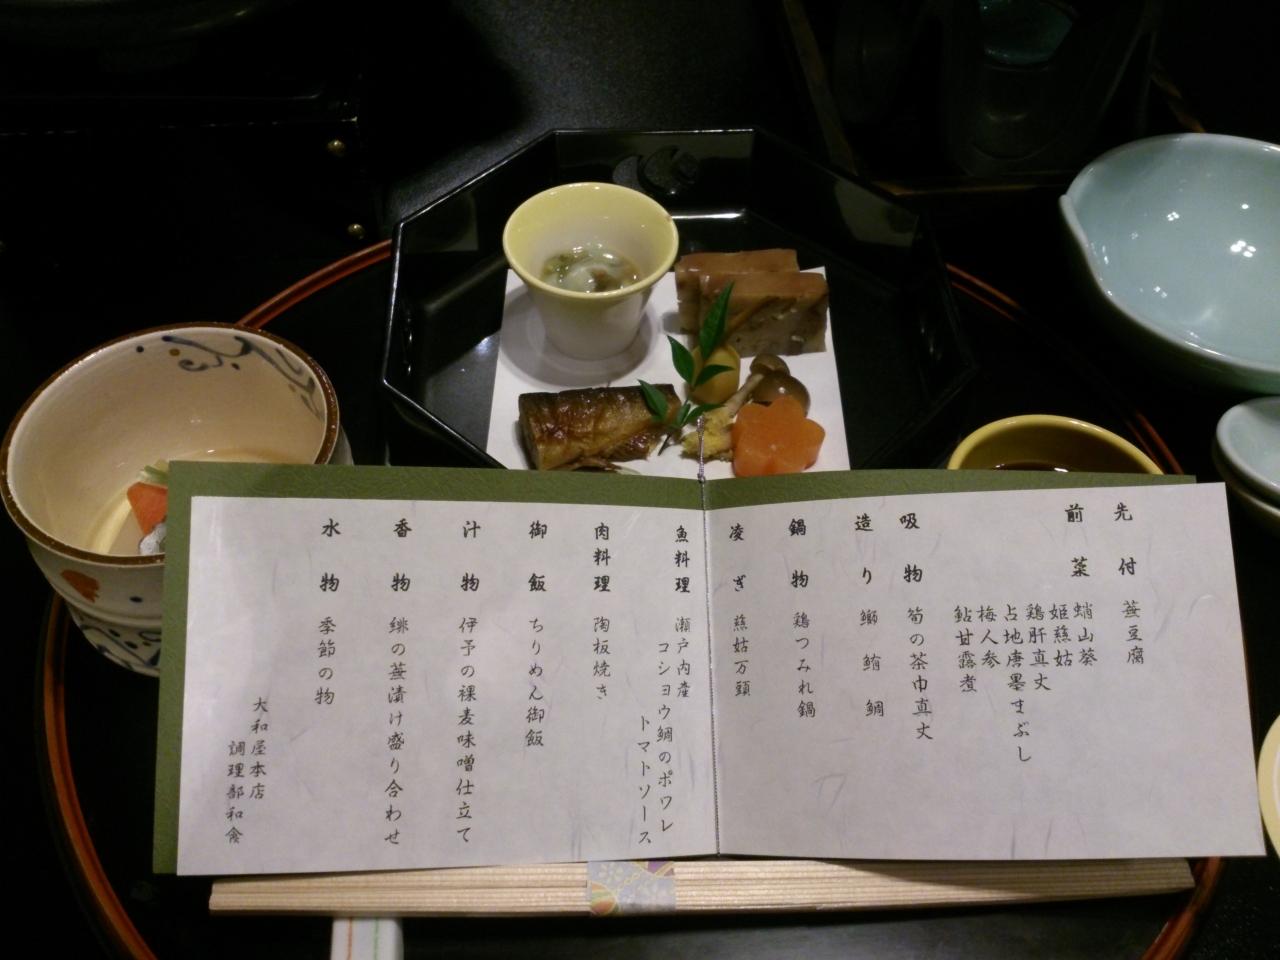 先付 蕪豆腐
前菜 蛸山葵
姫慈姑
鶏肝真丈
占地唐墨まぶし
梅人参
鮎甘露煮
吸物 筍の茶巾真丈
造り 鰤 鮪 鯛
鍋物 鶏つみれ鍋
凌ぎ 慈姑万頭
魚料理 瀬戸内産
コショウ鯛のポワレ
トマトソース
肉料理 陶板焼き
御飯 ちりめん御飯
汁物 伊予の裸麦味噌仕立て
香物 緋の蕪漬け盛り合わせ
水物 季節の物
大和屋本店
調理部和食